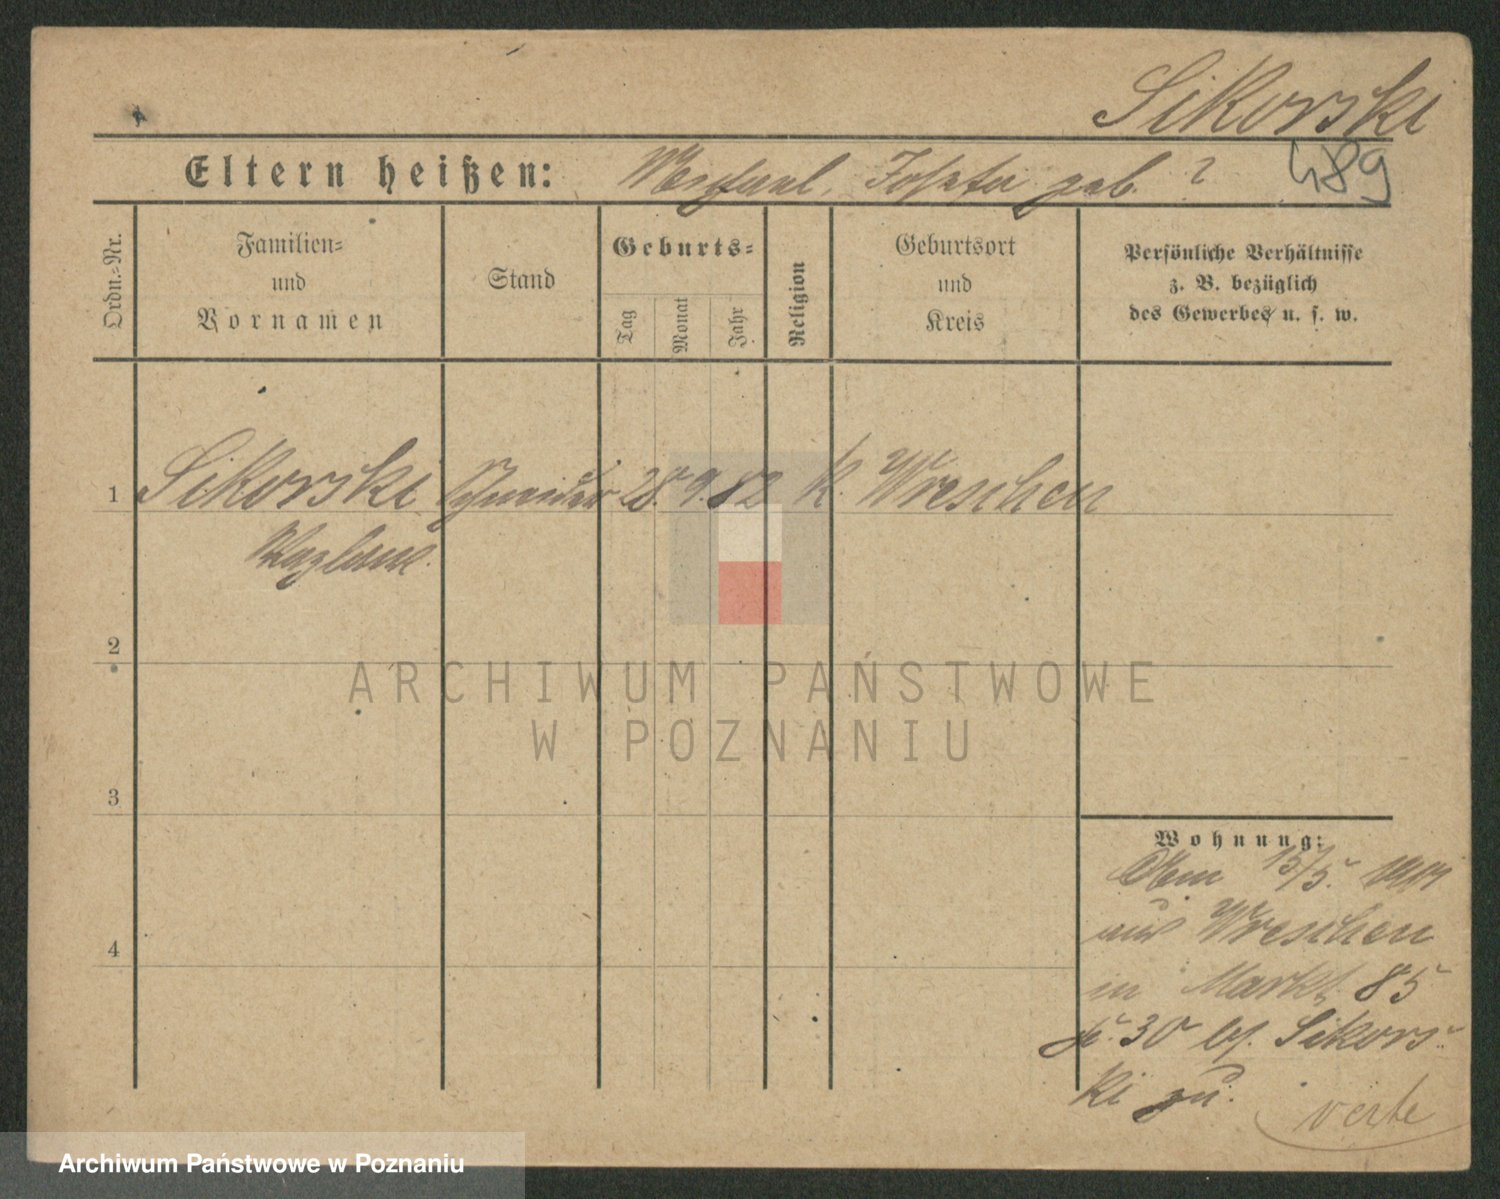 Sikorski
Eltern heißen: geb. ?
489
Ordn.-Nr.
Familien-
und
Vornamen
Stand
Geburts-
Tag
Monat
Jahr
Religion
Geburtsort
und
Kreis
Persönliche Verhältnisse
z. B. bezüglich
des Gewerbes u. s. w.
1 Sikorski Schneider 28. 9. 82 K. Wreschen
2
3
4
ARCHIWUM PAŃSTWOWE
W POZNANIU
Wohnung:
15/5.
aus Wreschen
in Markt 85
30 bf. Sikors-
ki zu.
verte
Archiwum Państwowe w Poznaniu